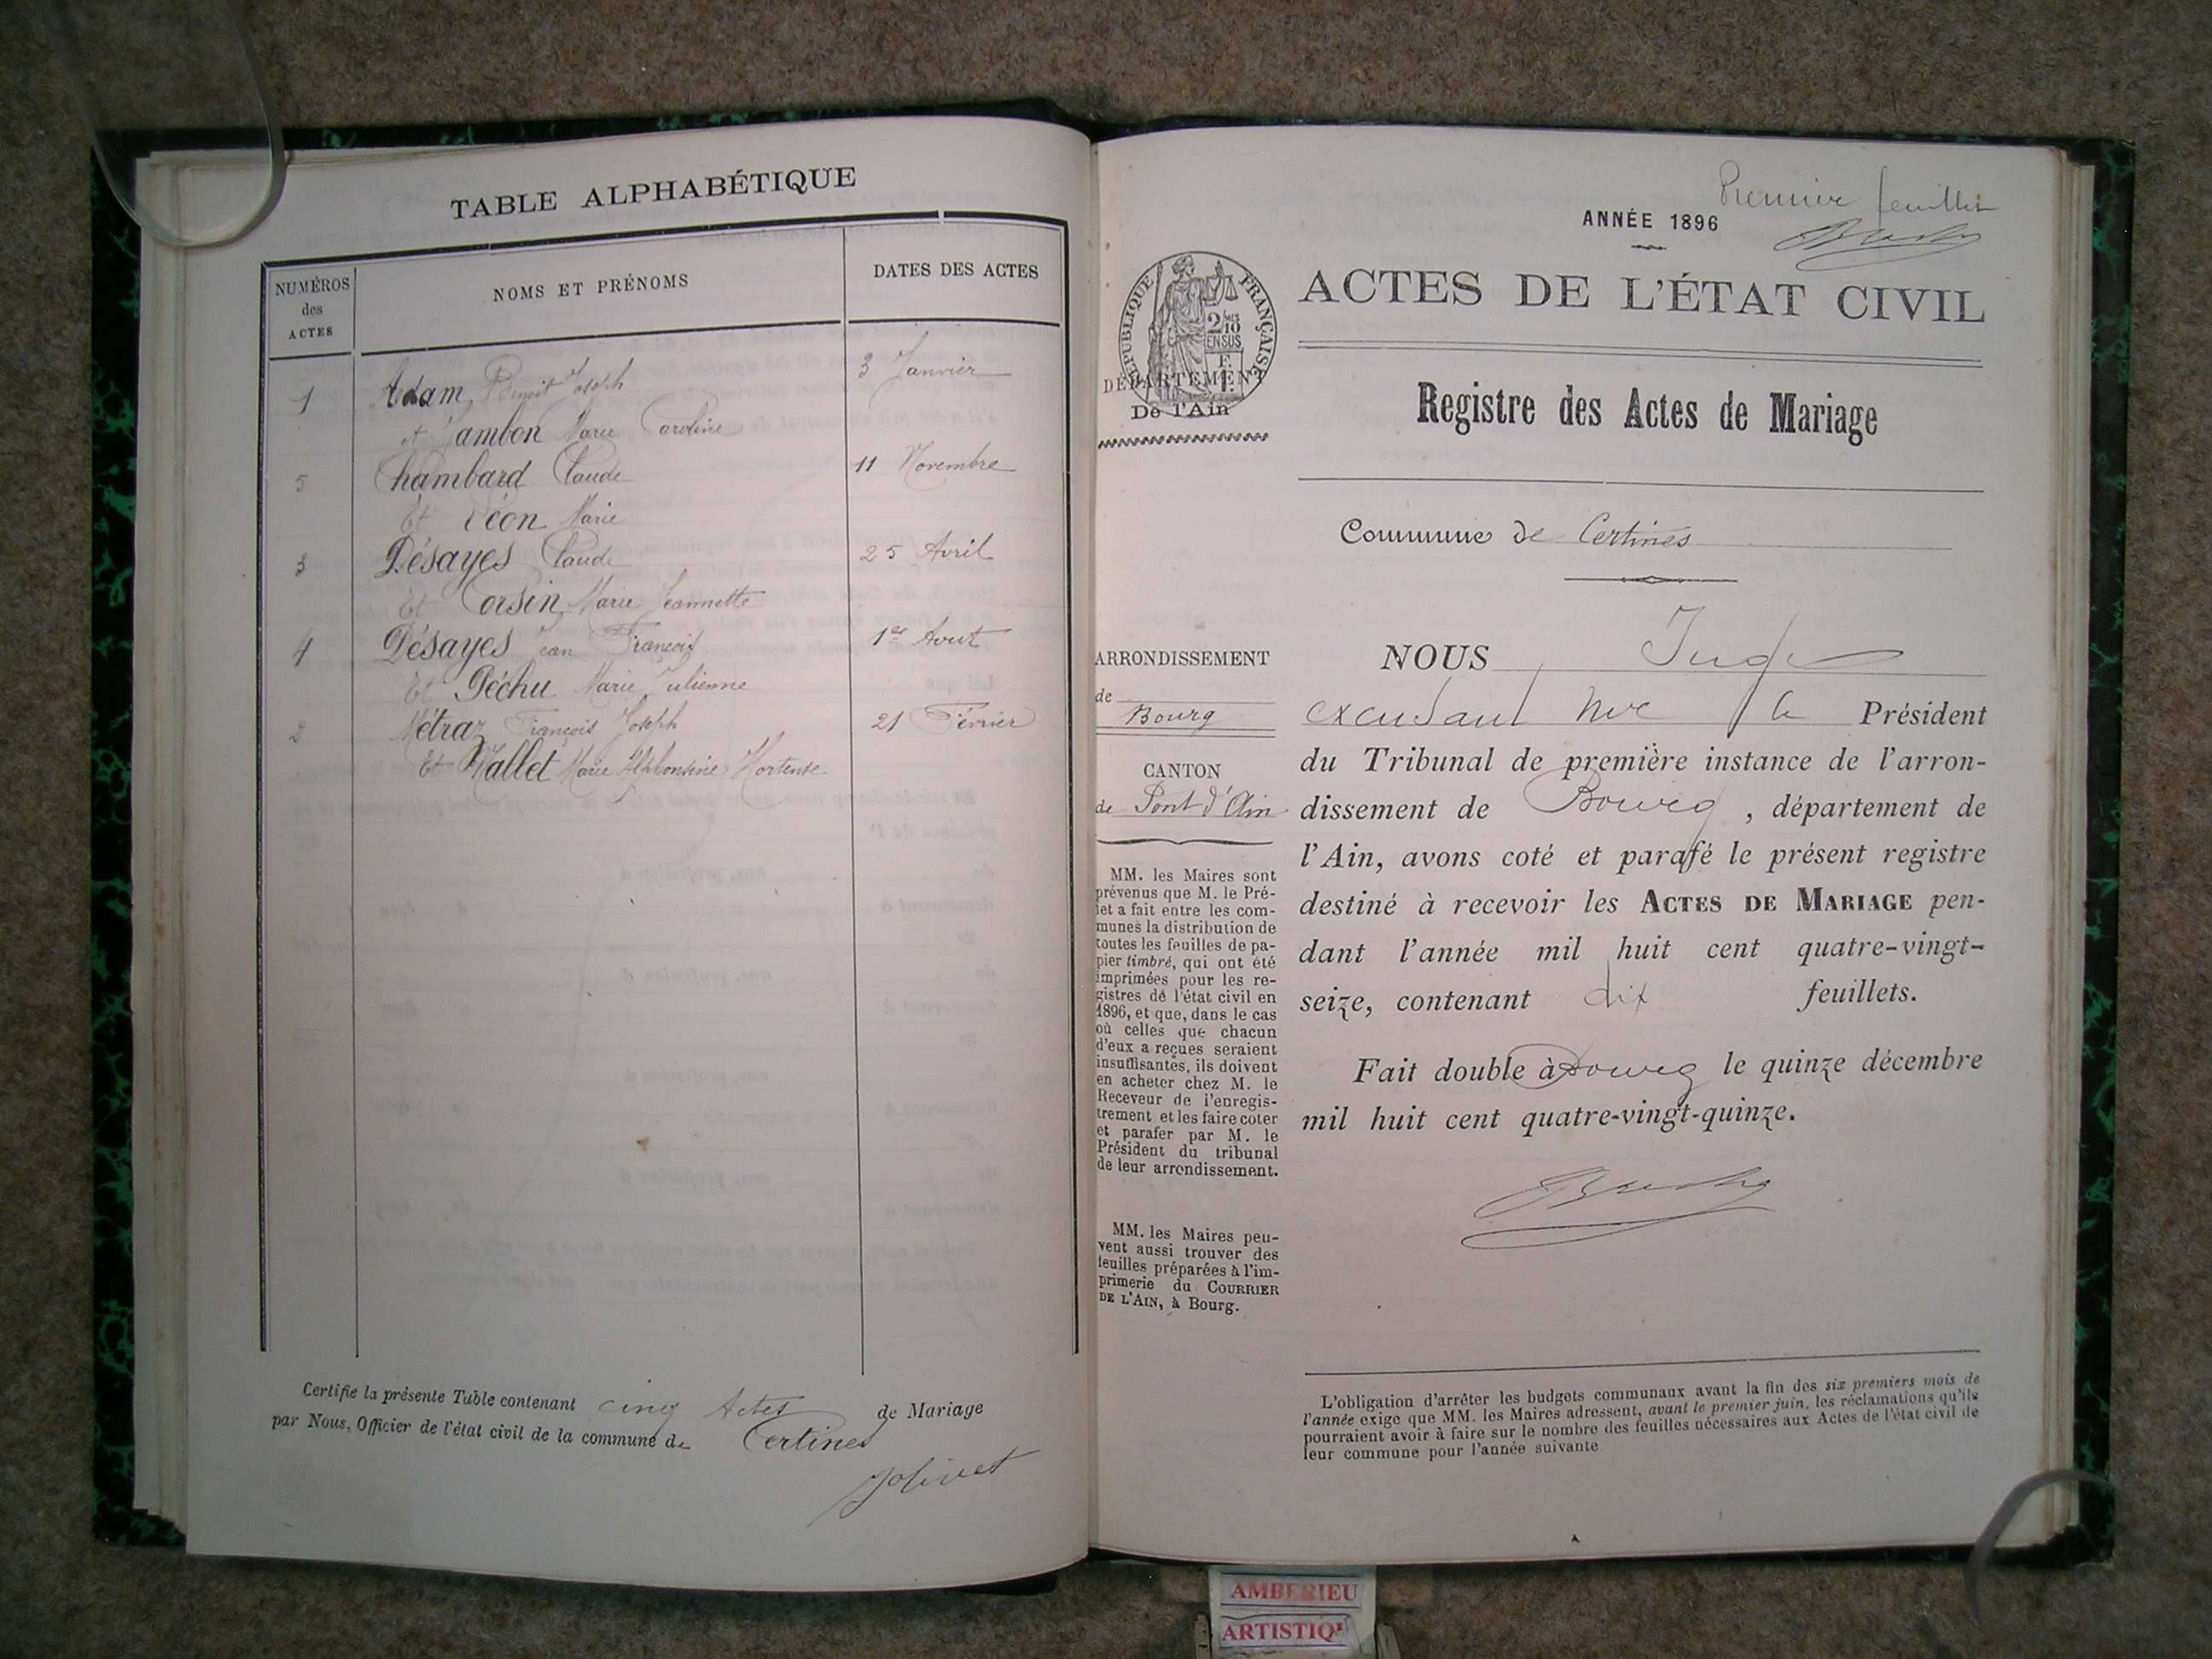 TABLE ALPHABÉTIQUE
NUMÉROS
des
ACTES
NOMS ET PRÉNOMS
DATES DES ACTES
1 Adam Benoit Joseph 3 Janvier
et Jambon Marie Caroline
5 Chambard Claude 11 Novembre
Et Péon Marie
3 Désayes Claude 25 Avril
Et Corsin Marie Jeannette
4 Désayes Jean François 1er Aout
Et Péchu Marie Julienne
2 Métraz François Joseph 21 Février
Et Mallet Marie Alphonsine Hortense
Certifie la présente Table contenant cinq Actes de Mariage
par Nous, Officier de l'état civil de la commune de Certines
Jolivet
Premier feuillet
ANNÉE 1896
RÉPUBLIQUE FRANÇAISE
2/10
MES
EN SUS
DÉPARTEMENT
De l'Ain
ACTES DE L'ÉTAT CIVIL
Registre des Actes de Mariage
Commune de Certines
ARRONDISSEMENT
de
Bourg
CANTON
de Pont d'Ain
MM. les Maires sont
prévenus que M. le Pré-
fet a fait entre les com-
munes la distribution de
toutes les feuilles de pa-
pier timbré, qui ont été
imprimées pour les re-
gistres de l'état civil en
1896, et que, dans le cas
où celles que chacun
d'eux a reçues seraient
insuffisantes, ils doivent
en acheter chez M. le
Receveur de l'enregis-
trement et les faire coter
et parafer par M. le
Président du tribunal
de leur arrondissement.
MM. les Maires peu-
vent aussi trouver des
feuilles préparées à l'im-
primerie du COURRIER
DE L'AIN, à Bourg.
NOUS, Juge
Président
du Tribunal de première instance de l'arron-
dissement de Bourg, département de
l'Ain, avons coté et parafé le présent registre
destiné à recevoir les ACTES DE MARIAGE pen-
dant l'année mil huit cent quatre-vingt-
seize, contenant dix feuillets.
Fait double à Bourg le quinze décembre
mil huit cent quatre-vingt-quinze.
L'obligation d'arrêter les budgets communaux avant la fin des six premiers mois de
l'année exige que MM. les Maires adressent, avant le premier juin, les réclamations qu'ils
pourraient avoir à faire sur le nombre des feuilles nécessaires aux Actes de l'état civil de
leur commune pour l'année suivante
AMBERIEU
ARTISTIQ